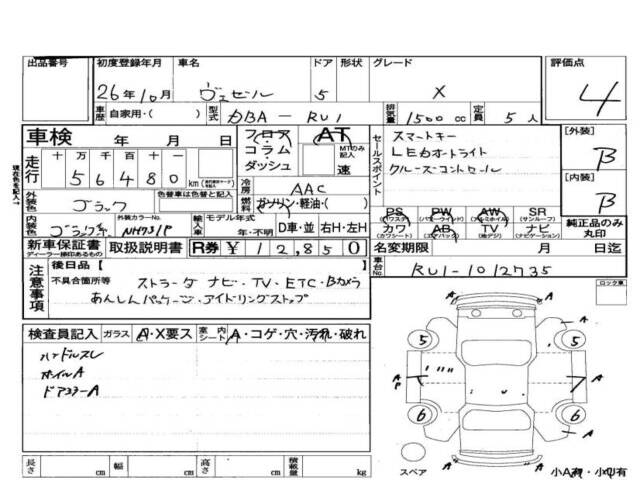 出品番号 初度登録年月 車名 ドア 形状 グレード 評価点
26年10月 ヴェゼル 5 X 4
車歴 自家用・( ) 型式 DBA－RU1 排気量 1500 cc 定員 5人
車検 年 月 日 フロア コラム ダッシュ AT MTのみ記入 速
走行 十 万 千 百 十 一
5 6 4 8 0 km
冷房 AAC
燃料 ガソリン・軽油・( )
セールスポイント
スマートキー
LEDオートライト
クルーズコントロール
[外装] B
[内装] B
純正品のみ丸印
PS PW AW SR
(パワステ) (パワーウインド) (アルミホイル) (サンルーフ)
カワ AB TV ナビ
(カワシート) (エアバック) (地デジ) (ナビゲーション)
外装色 ブラック 色替車は色替と記入
内装色 外装カラーNo. NH731P 輸入車 モデル年式 年・不明 D車・並 右H・左H
新車保証書 取扱説明書 R券 ¥12,850
ディーラー捺印あるもの
名変期限 月 日迄
車台No. RU1-1012735
注意事項
後日品( )
不具合箇所等 ストラーダ ナビ・TV・ETC・Bカメラ
あんしんパッケージ・アイドリングストップ
ロック車
検査員記入 ガラス A・X要ス 室内シート A・コゲ・穴・汚れ・破れ
ハンドルスレ
ホイルA
ドアミラーA
現在色を記入→
A A A
5 5
A P A
6 6
A A A
スペア
小A有・小U有
長さ cm 幅 cm 高さ cm 積載量 kg